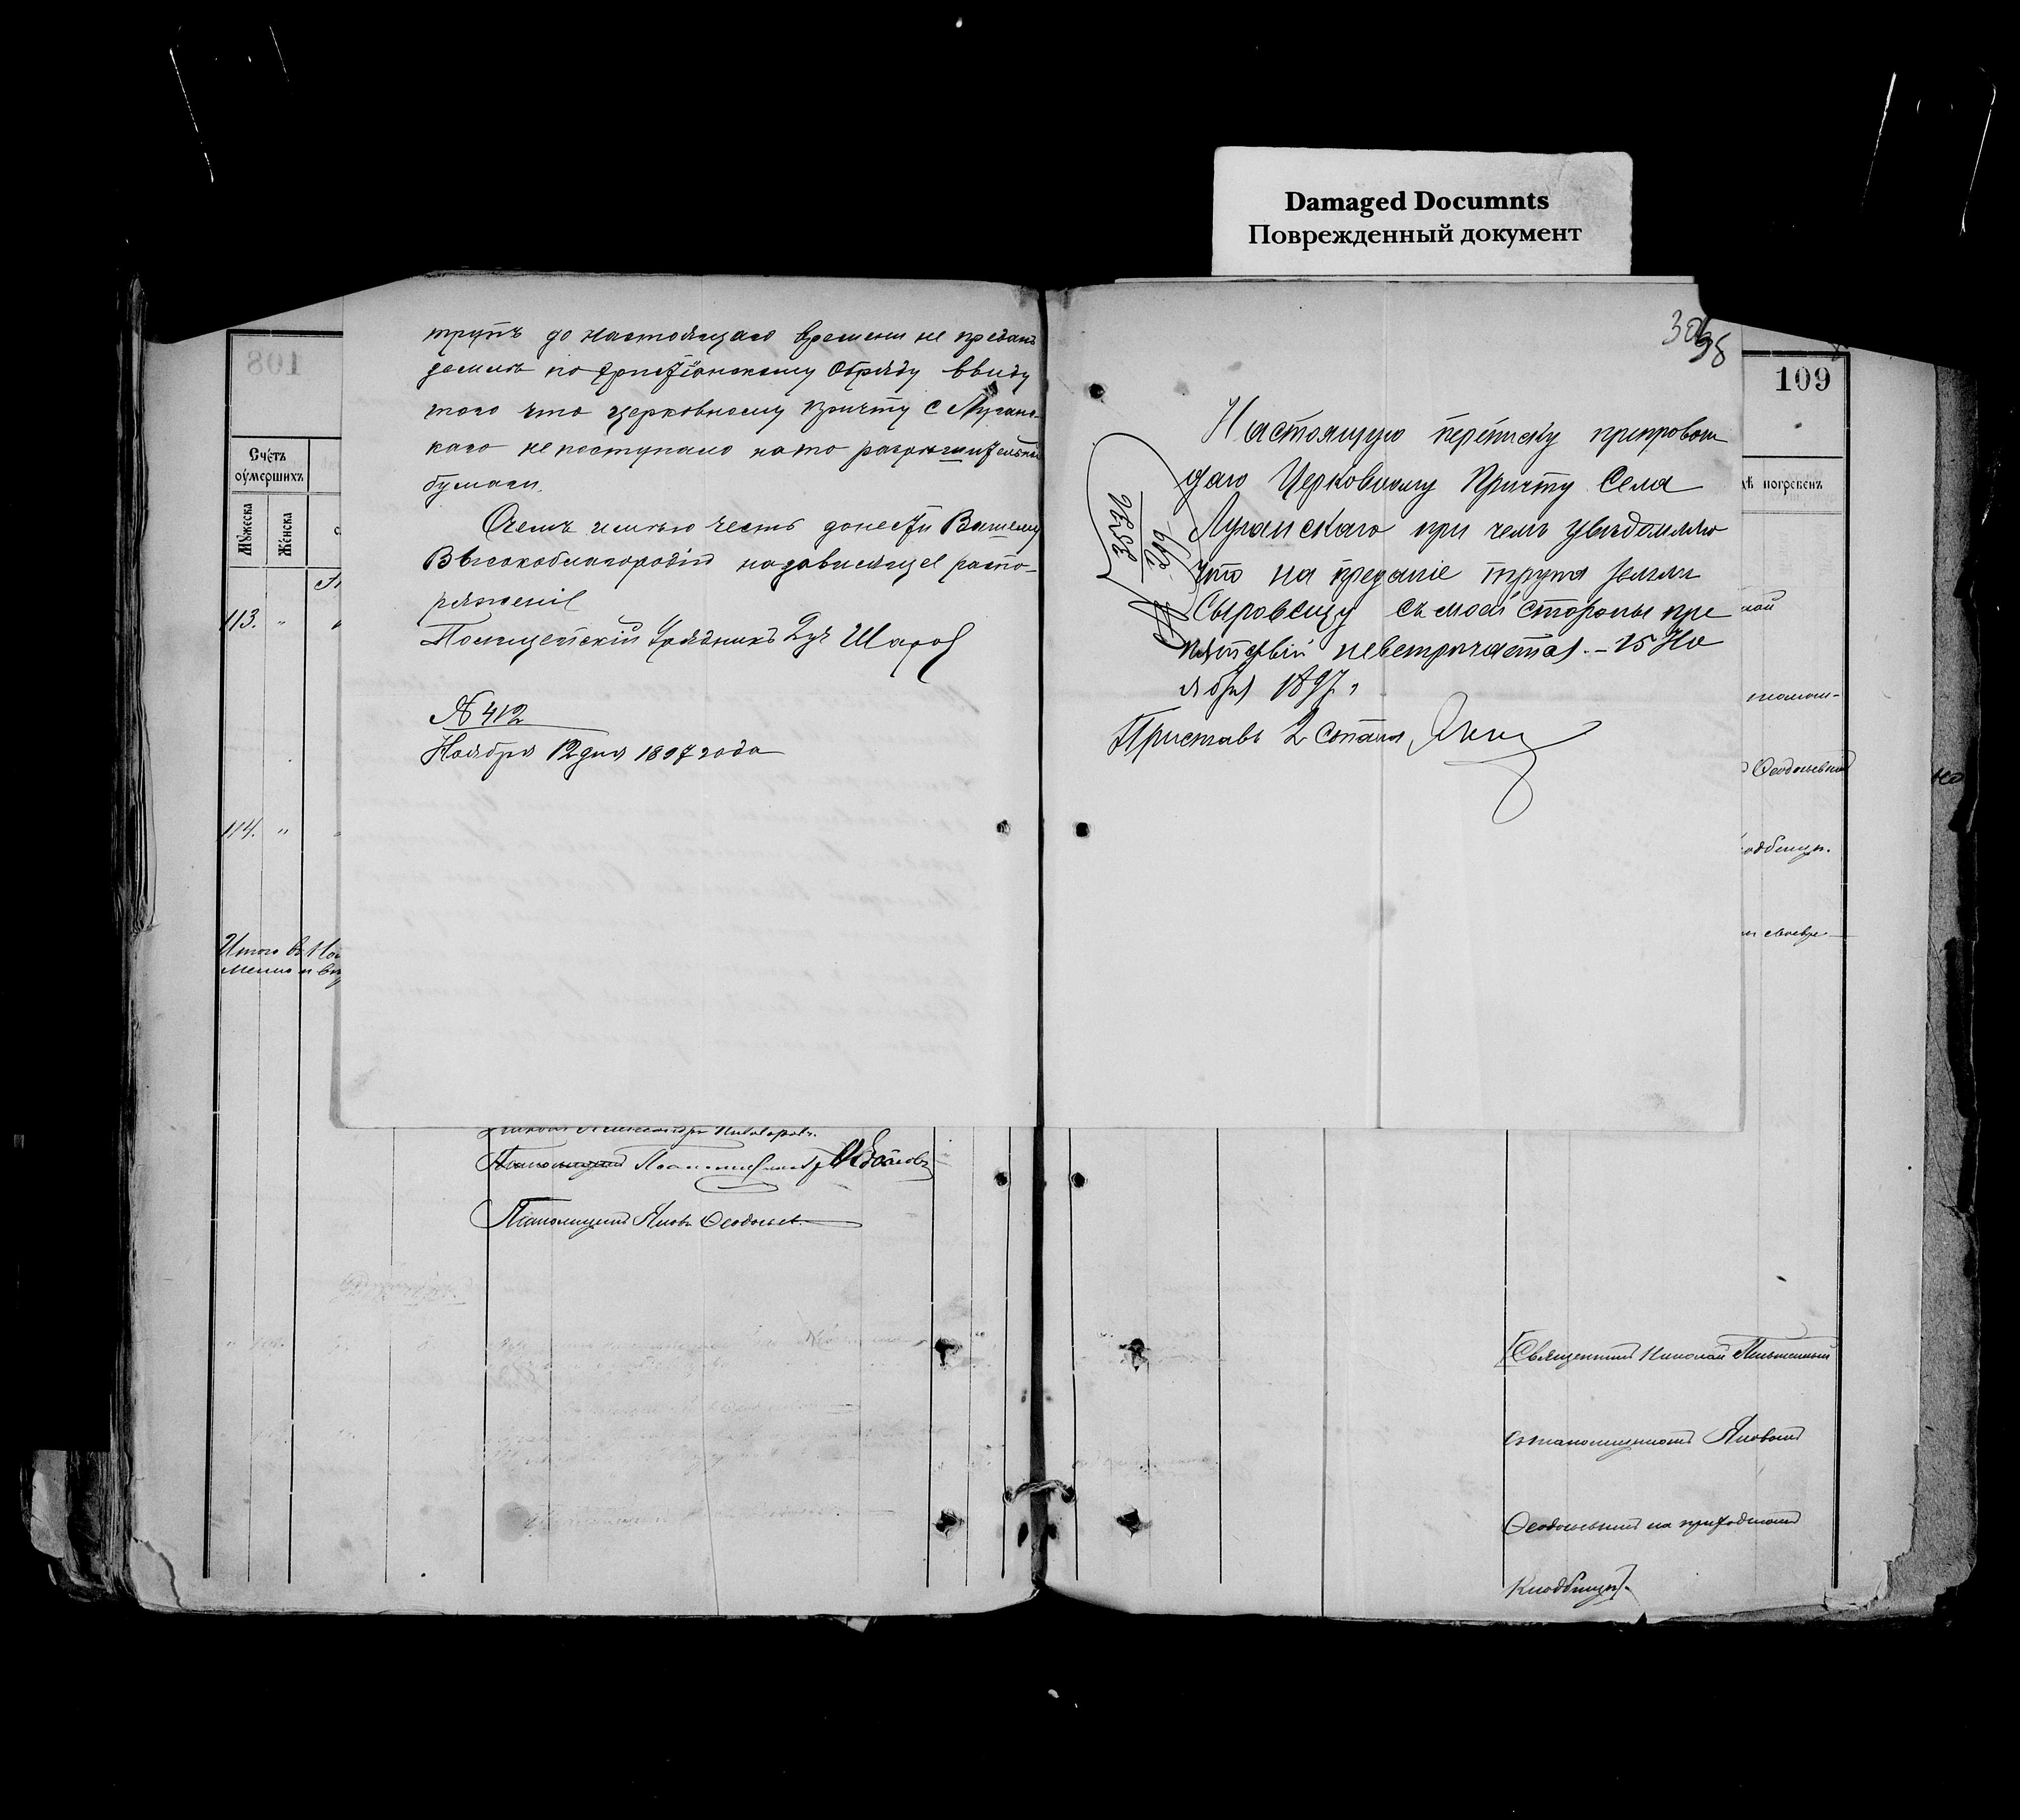 Damaged Documnts
Поврежденный документ
108
Счетъ
оумершихъ
Мужеска
Женска
113. "
114. "
Итого въ Но
трупъ до настоящаго времени не преданъ
землѣ по христіанскому обряду ввиду
того что церковному причту с Луганс-
каго не поступало на то разрѣшительной
бумаги.
О чемъ имѣю честь донести Вашему
Высокоблагородію на зависящее распо-
ряженіе
Полицейскій Урядникъ 2 уч Шаров
№ 412
Ноября 12 дня 1897 года
Псаломщикъ
Псаломщикъ Яковъ Ѳеодосьев
109
погребенъ
35536
299
Настоящую переписку препровож
даю Церковному Причту Села
Луганскаго при чемъ увѣдомляю
что на преданіе трупа земли
Сыровецу съ моей стороны пре
пятствій не встречается. – 15 Но
ября 1897 г
Приставъ 2 стана
Священникъ Николай
съ псаломщикомъ Яковомъ
Ѳеодосьевымъ на приходскомъ
кладбищѣ.